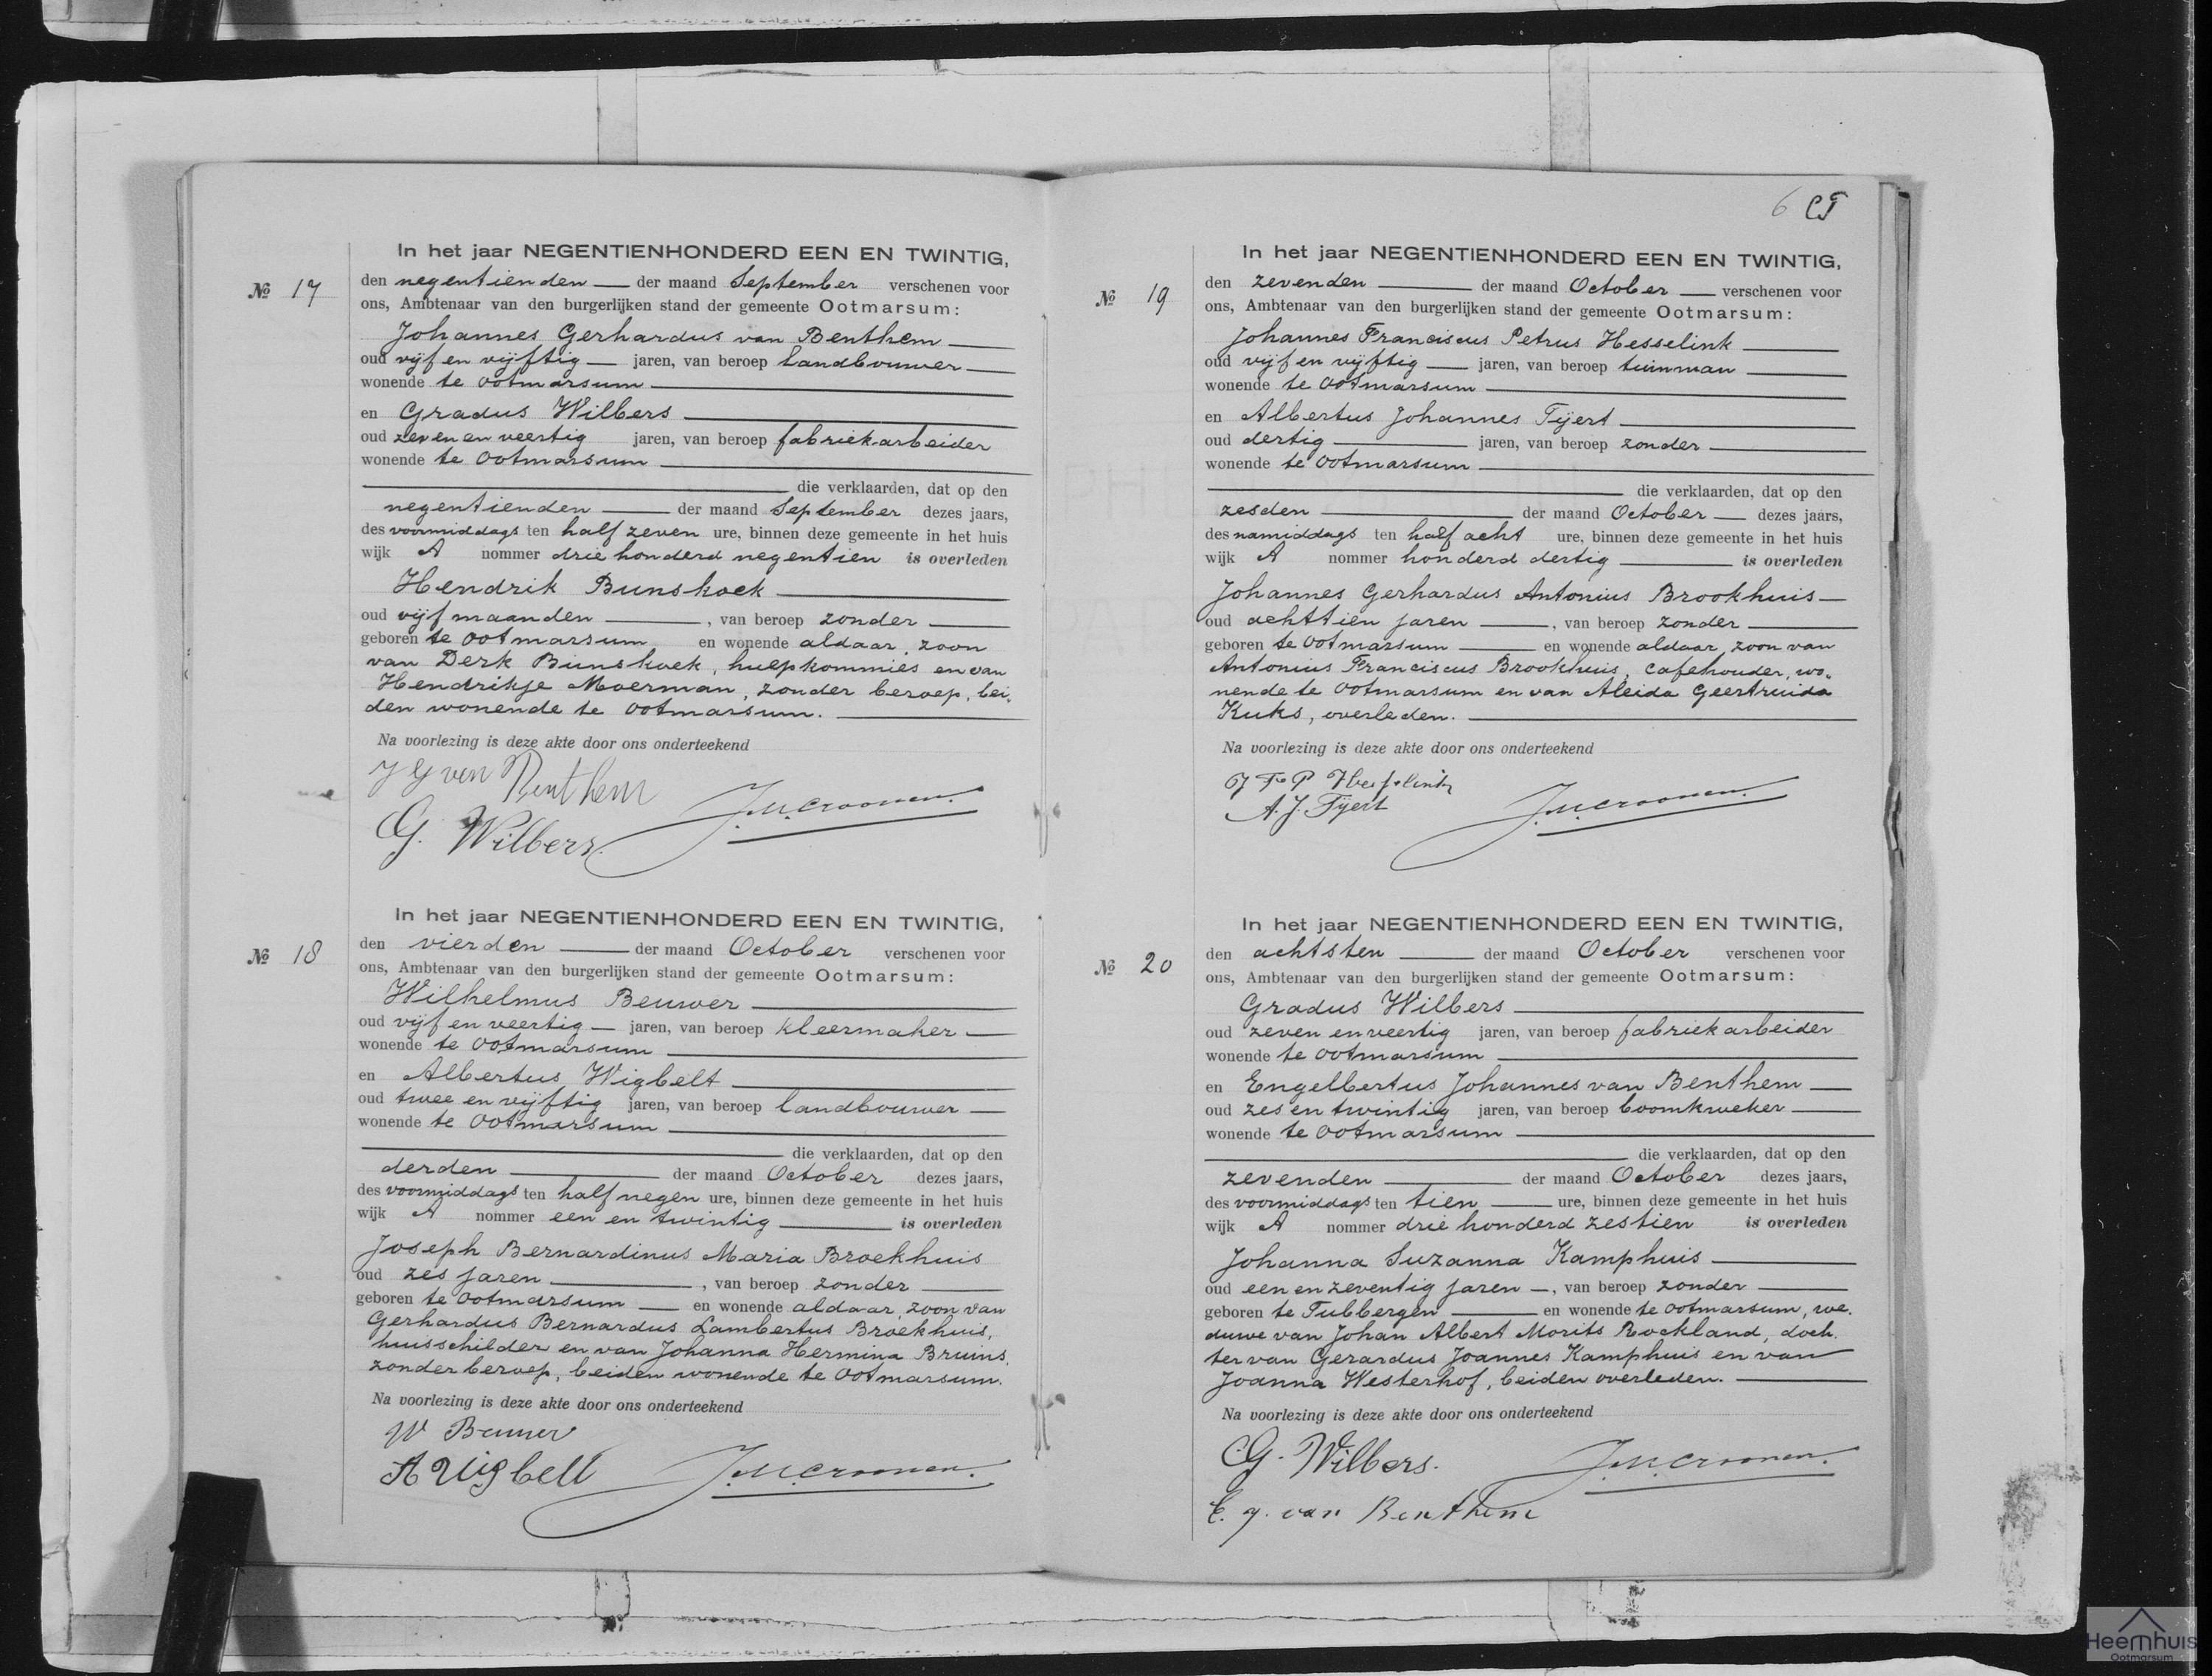 In het jaar NEGENTIENHONDERD EEN EN TWINTIG,
№ 17
den negentienden der maand September verschenen voor
ons, Ambtenaar van den burgerlijken stand der gemeente Ootmarsum:
Johannes Gerhardus van Benthem
oud vijf en vijftig jaren, van beroep landbouwer
wonende te Ootmarsum
en Gradus Wilbers
oud zeven en veertig jaren, van beroep fabriekarbeider
wonende te Ootmarsum
die verklaarden, dat op den
negentienden der maand September dezes jaars,
des voormiddags ten half zeven ure, binnen deze gemeente in het huis
wijk A nommer drie honderd negentien is overleden
Hendrik Bunskoek
oud vijf maanden, van beroep zonder
geboren te Ootmarsum en wonende aldaar, zoon
van Derk Bunskoek, hulpkommies en van
Hendrikje Moerman, zonder beroep, bei„
den wonende te Ootmarsum.
Na voorlezing is deze akte door ons onderteekend
J G van Benthem
G. Wilbers.
J.M.Croonen.
In het jaar NEGENTIENHONDERD EEN EN TWINTIG,
№ 18
den vierden der maand October verschenen voor
ons, Ambtenaar van den burgerlijken stand der gemeente Ootmarsum:
Wilhelmus Beuwer
oud vijf en veertig jaren, van beroep kleermaker
wonende te Ootmarsum
en Albertus Wigbelt
oud twee en vijftig jaren, van beroep landbouwer
wonende te Ootmarsum
die verklaarden, dat op den
derden der maand October dezes jaars,
des voormiddags ten half negen ure, binnen deze gemeente in het huis
wijk A nommer een en twintig is overleden
Joseph Bernardinus Maria Broekhuis
oud zes jaren, van beroep zonder
geboren te Ootmarsum en wonende aldaar, zoon van
Gerhardus Bernardus Lambertus Broekhuis,
huisschilder en van Johanna Hermina Bruins,
zonder beroep, beiden wonende te Ootmarsum.
Na voorlezing is deze akte door ons onderteekend
W Beuwer
A Wigbelt
J.M.Croonen.
6 CT
In het jaar NEGENTIENHONDERD EEN EN TWINTIG,
№ 19
den zevenden der maand October verschenen voor
ons, Ambtenaar van den burgerlijken stand der gemeente Ootmarsum:
Johannes Franciscus Petrus Hesselink
oud vijf en vijftig jaren, van beroep tuinman
wonende te Ootmarsum
en Albertus Johannes Tijert
oud dertig jaren, van beroep zonder
wonende te Ootmarsum
die verklaarden, dat op den
zesden der maand October dezes jaars,
des namiddags ten half acht ure, binnen deze gemeente in het huis
wijk A nommer honderd dertig is overleden
Johannes Gerhardus Antonius Brookhuis
oud achttien jaren, van beroep zonder
geboren te Ootmarsum en wonende aldaar, zoon van
Antonius Franciscus Brookhuis, cafehouder, wo„
nende te Ootmarsum en van Aleida Geertruida
Kuks, overleden.
Na voorlezing is deze akte door ons onderteekend
J F P Hesselink
A. J. Tijert
J.M.Croonen.
In het jaar NEGENTIENHONDERD EEN EN TWINTIG,
№ 20
den achtsten der maand October verschenen voor
ons, Ambtenaar van den burgerlijken stand der gemeente Ootmarsum:
Gradus Wilbers
oud zeven en veertig jaren, van beroep fabriekarbeider
wonende te Ootmarsum
en Engelbertus Johannes van Benthem
oud zes en twintig jaren, van beroep boomkweker
wonende te Ootmarsum
die verklaarden, dat op den
zevenden der maand October dezes jaars,
des voormiddags ten tien ure, binnen deze gemeente in het huis
wijk A nommer drie honderd zestien is overleden
Johanna Suzanna Kamphuis
oud een en zeventig jaren, van beroep zonder
geboren te Tubbergen en wonende te Ootmarsum, we„
duwe van Johan Albert Morits Rockland, doch„
ter van Gerardus Joannes Kamphuis en van
Joanna Westerhof, beiden overleden.
Na voorlezing is deze akte door ons onderteekend
G. Wilbers.
J.M.Croonen.
E. J. van Benthem
Heemhuis
Ootmarsum